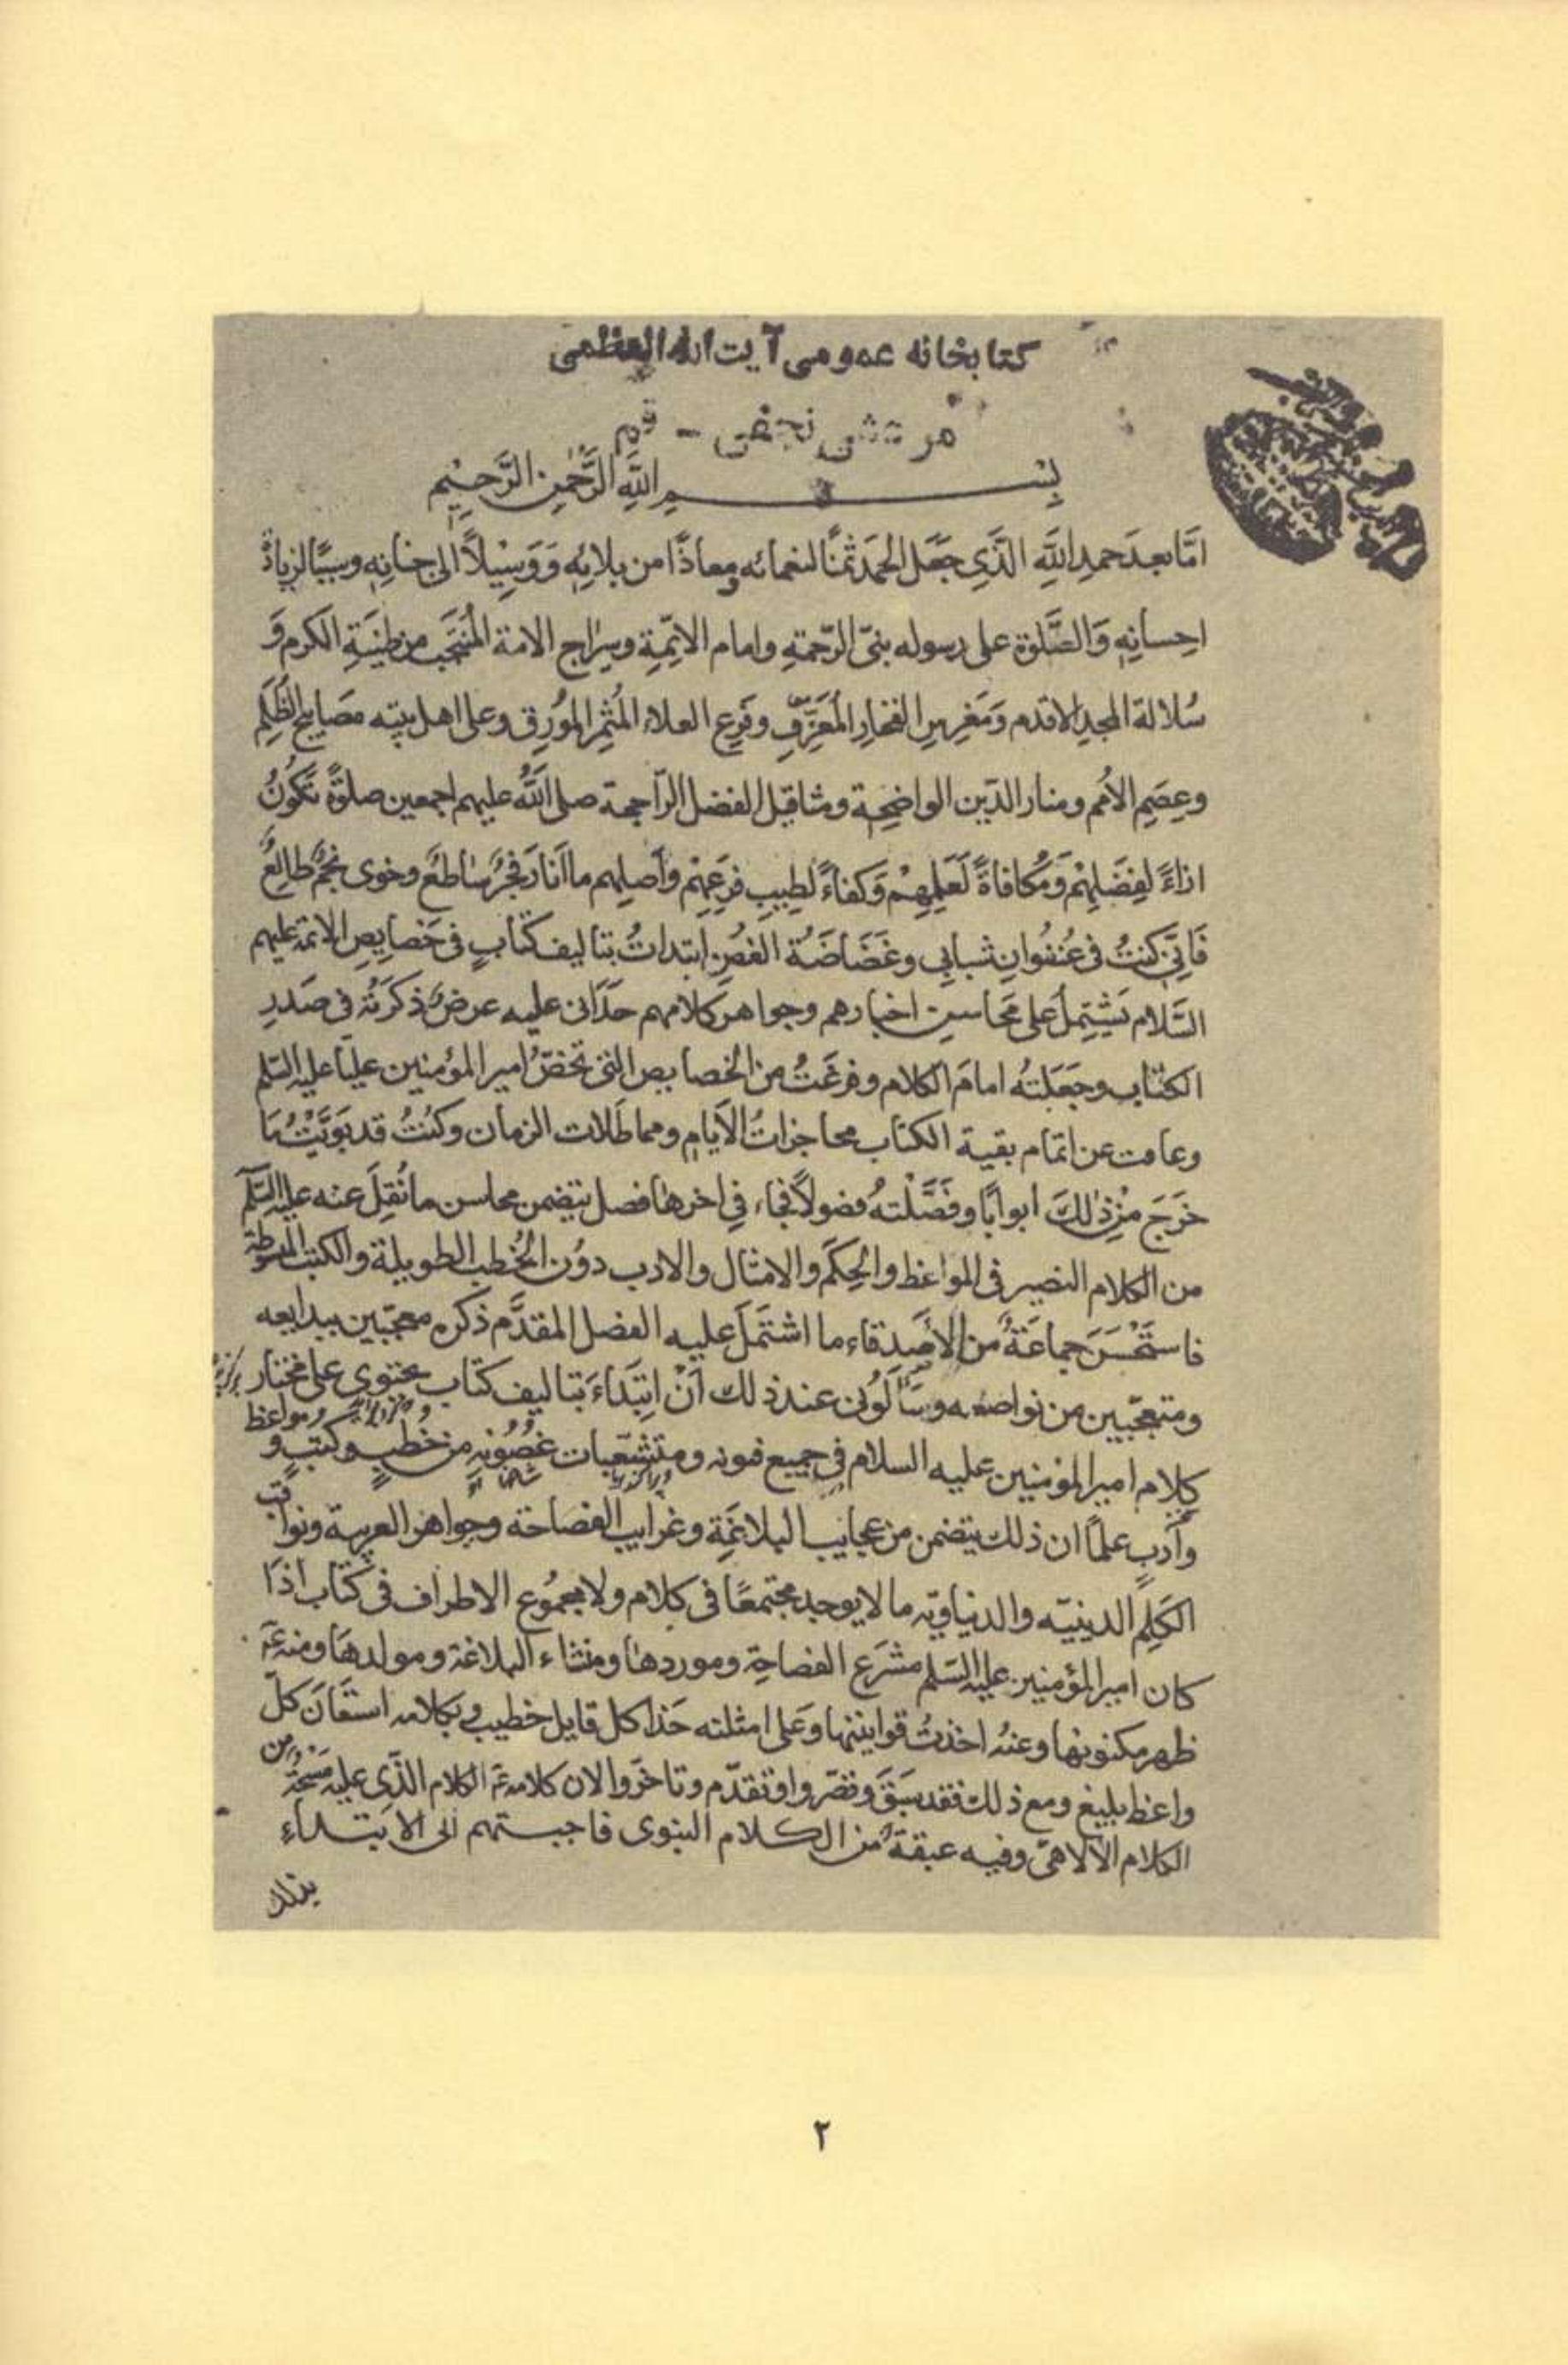 كتابخانه عمومى آيت الله العظمى
مرعشى نجفى - قم
بِسْمِ اللَّهِ الرَّحْمٰنِ الرَّحِيْمِ
امَّا بعدَ حمدِ اللَّهِ الَّذِى جَعَل الحمَدَ ثمنًا لنعمائه ومعاذًا من بلائِهِ وَوَسِيْلًا الى جنانِهِ وسببًا لزيادة
احِسانِهِ وَالصَّلوة على رسوله نبىّ الرّحمةِ وامام الائِمّةِ وسِرٰاج الامة المُنْتَجَبِ من طِينَةِ الكرم وَ
سُلالة المجدِ الاقدم وَمَغرِسِ الفخارِ المُعَرَّقِ وفَرِع العلاءِ المُثمِرِ المُورِق وعلى اهل بيته مصَابيح الظُلَمِ
وعِصَمِ الأمم ومنار الدّين الواضِحِة ومثاقيل الفضل الرّاجحة صلى اللَّهُ عليهم اجمعين صلوةً تكُونُ
ازاءً لِفضَلِهِمْ وَمُكافاةً لَعَمَلِهِمْ وَكفاءً لطِيبِ فرَعِهْم وَاَصلِهم ما اَنارَ فجرٌ سٰاطعٌ وخوى نجمٌ طالِعٌ
فَاِنّى كنتُ فى عُنفُوانِ شبابى وغَضَاضَةِ الغُصنِ ابتداتُ بتاليف كتٰابٍ فى خصايِصِ الائمة عليهم
السَّلام يَشْتِملُ على مَحَاسِن اخبارهم وجواهر كلامهم حدَانى عليه عرضٌ ذكرتُهُ فى صَدرِ
الكتٰاب وجعَلتهُ امامَ الكلام وفرغتُ من الخصايص التى تخصّ امير المؤمنين عليًا عليه السّلم
وعاقت عن اتمام بقية الكتاب محاجزاتُ الأيامِ ومماطَلات الزمان وكنتُ قد بوَبّتُ مَا
خَرَجَ مِنْ ذٰلكَ ابوابًا وفَصَّلْتهُ فصولًا فجاء فِى اخرهٰا فصل يتضمن محاسن ما نُقِلَ عنه عليه السّلم
من الكلام القصير فى المواعظ والحِكَم والامثال والادب دوُن الخُطبِ الطويلة والكتب المبسوطة
فاستَحْسَنَ جماعَةٌ من الأصِدقاء ما اشتَملَ عليه الفصل المقدَّم ذكره معجبين ببدايعه
ومتعجّبين من نواصعه وسَاَلُونى عند ذلك اَنْ ابِتَداءَ بتاليف كتٰاب يحتوى على مختار
كلام امير المؤمنين عليه السلام فى جميع فنونه ومتشعّبات غصُونِهِ من خُطبٍ وكتبٍ و مواعظ
وآدبٍ علماً ان ذلك يتضمن من عجائب البلاغَةِ وغرايب الفصاحة وجواهر العربية وثواقب
الكَلِمِ الدينيّه والدنياويّه ما لا يوجد مجتمعًا فى كلام ولا مجمُوع الاطراف فى كتٰاب اذا
كان امير المؤمنين عليه السّلم مشرَع الفصاحِة وموردها ومنشاء البلاغة ومولدهَا ومنه عَ
ظهر مكنونها وعنهُ اخذتُ قوانينها وَعَلى امثلته حَذا كل قايل خطيب وبكلامه استعَان كلّ
واعظ بليغ ومع ذلك فقد سَبَقَ وقصّروا وتقدّم وتاخّروا لان كلامه عَ الكلام الّذى عليه مَسحَةٌ من
الكلام الالاهىّ وفيه عبقةٌ من الكلام النبوى فاجبتهم الى الابتداءِ
بذلك
٢